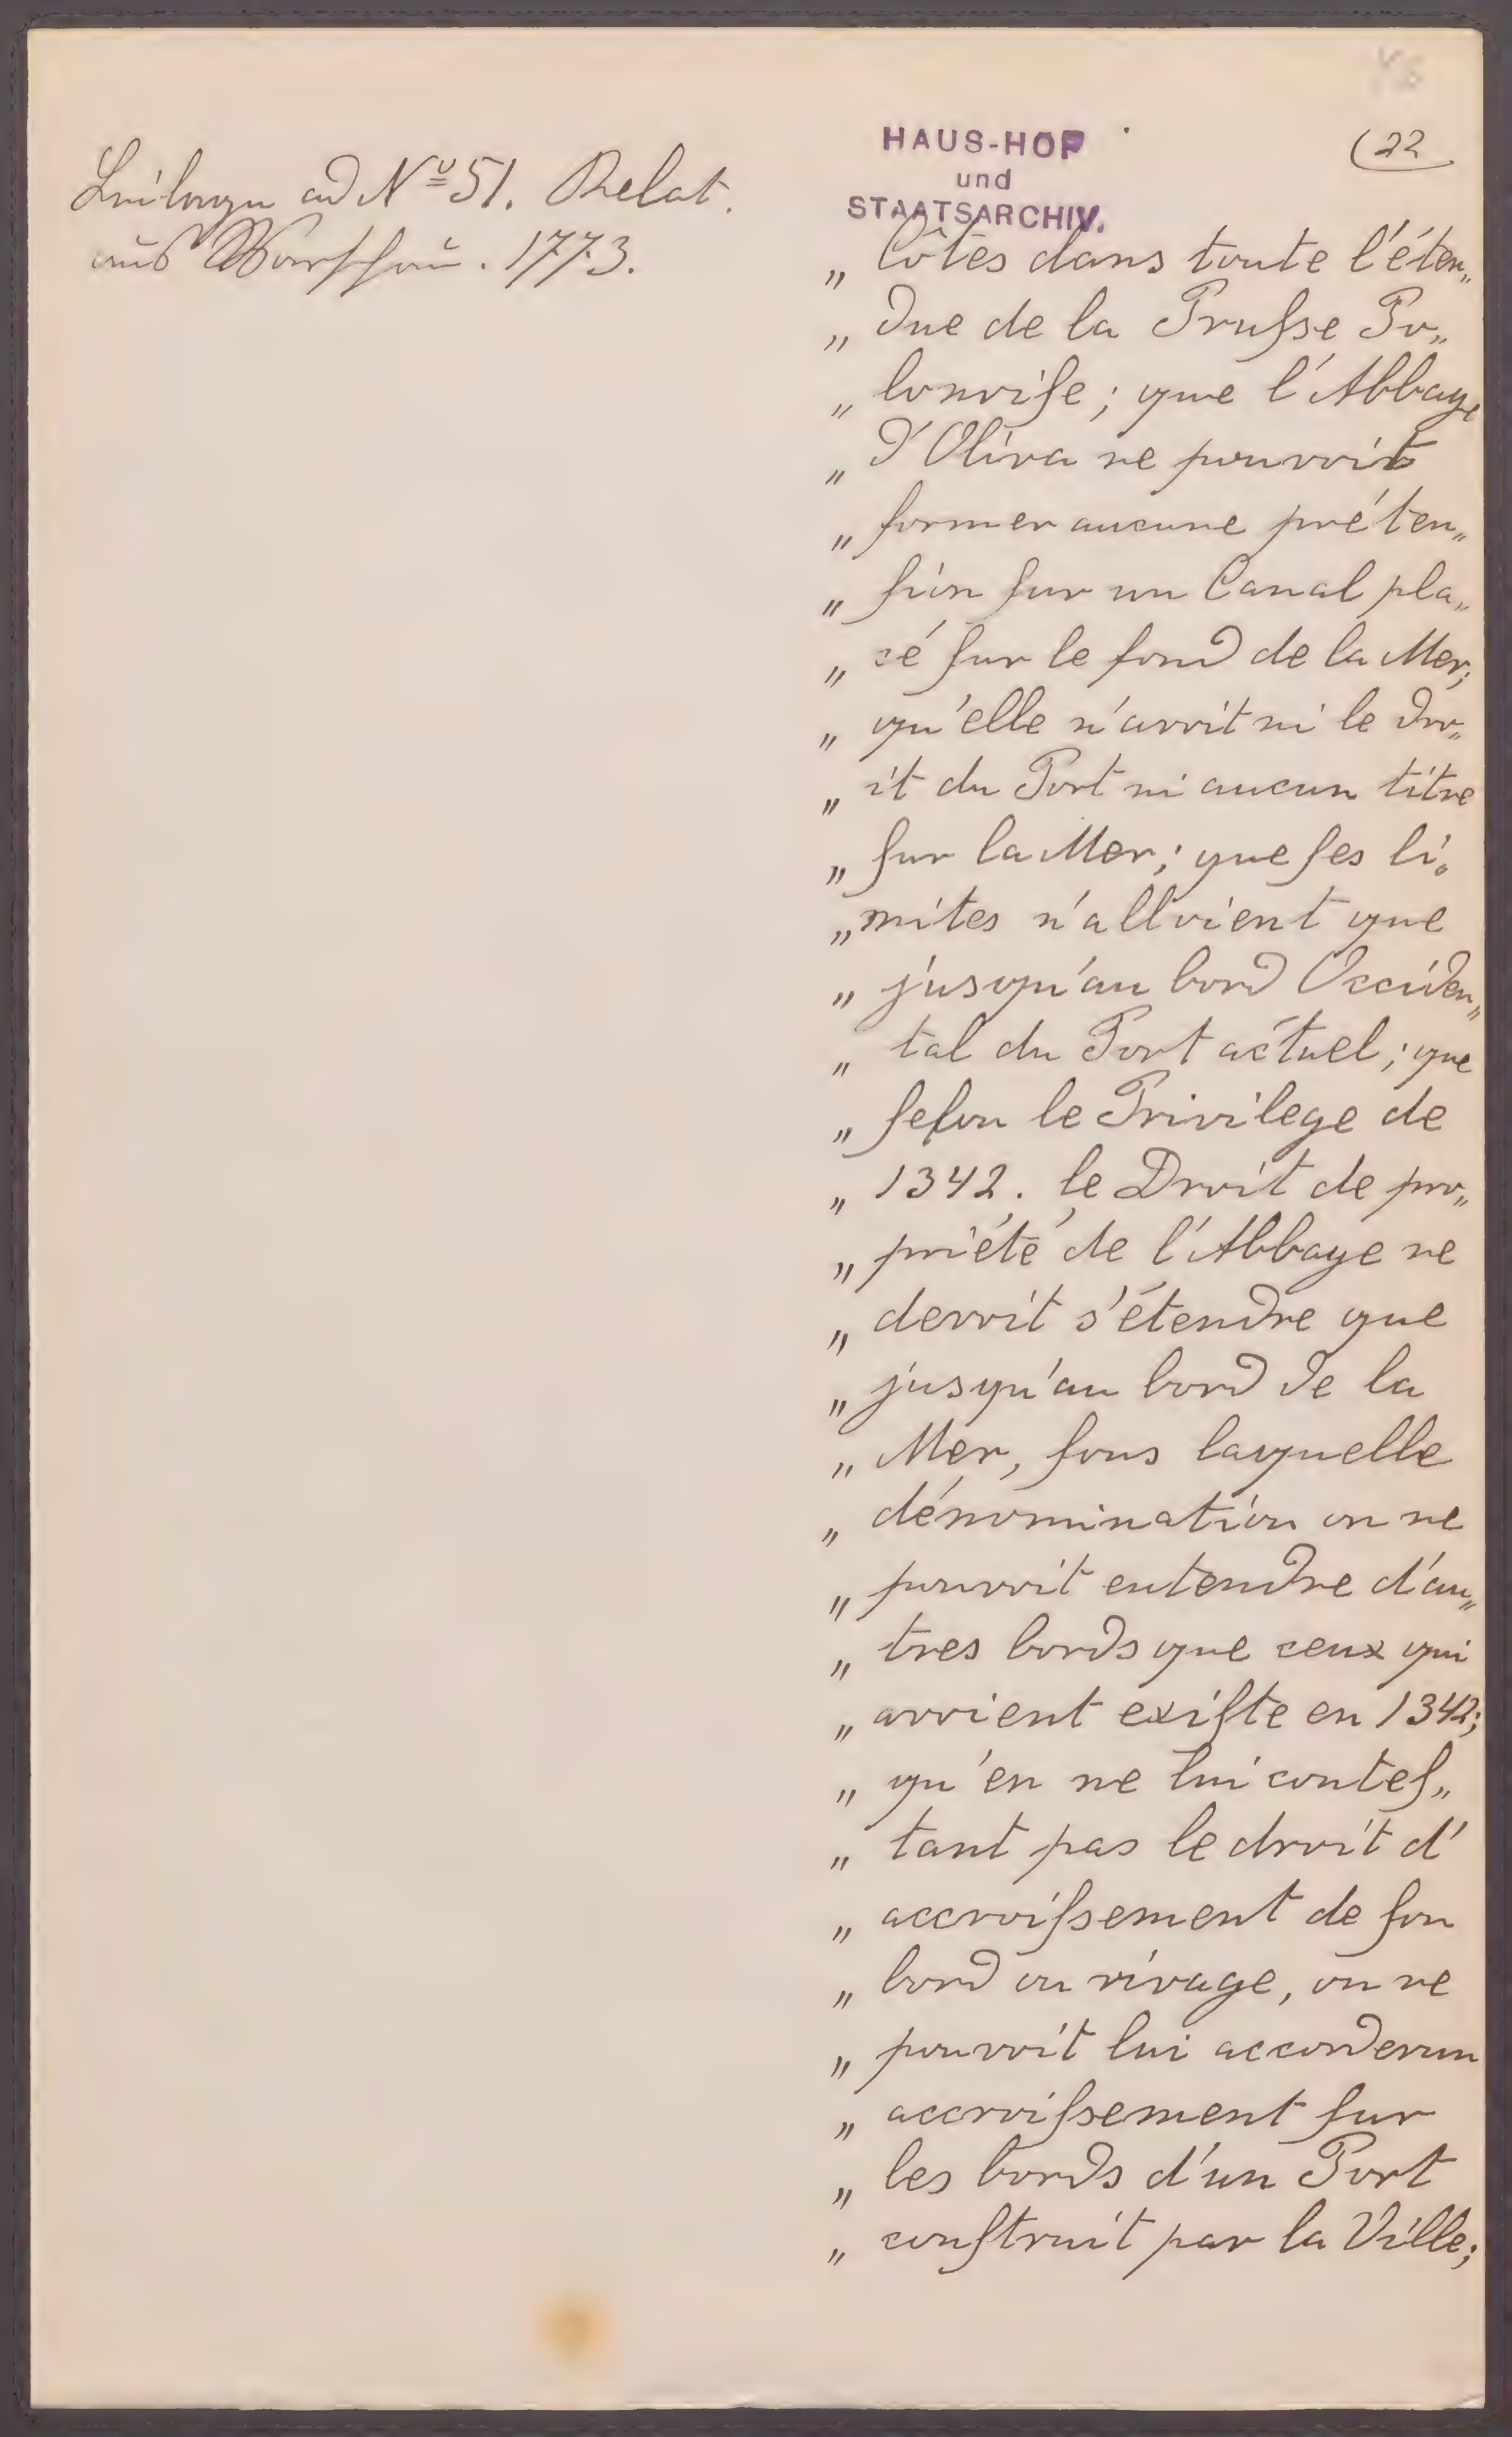 Beilagen ad Nº 51. Relat.
aus Warschau. 1773.
HAUS-HOF
und
STAATSARCHIV.
(22
„ Côtes dans toute l'éten„
„ due de la Pruſse Po„
„ lonoiſe; que l'Abbaye
„ d'Oliva ne pouvoit
„ former aucune préten„
„ ſion ſur un Canal pla„
„ cé ſur le fond de la Mer;
„ qu'elle n'avoit ni le dro„
„ it du Port ni aucun titre
„ ſur la Mer; que ſes li„
„ mites n'alloient que
„ jusqu'au bord Occiden„
„ tal du Port actuel; que
„ ſelon le Privilege de
„ 1342. le Droit de pro„
„ priété de l'Abbaye ne
„ devoit s'étendre que
„ jusqu'au bord de la
„ Mer, ſous laquelle
„ dénomination on ne
„ pouvoit entendre d'au„
„ tres bords que ceux qui
„ avoient exiſte en 1342;
„ qu'en ne lui conteſ„
„ tant pas le droit d'
„ accroiſsement de ſon
„ bord ou rivage, on ne
„ pouvoit lui accorder un
„ accroiſsement ſur
„ les bords d'un Port
„ conſtruit par la Ville;